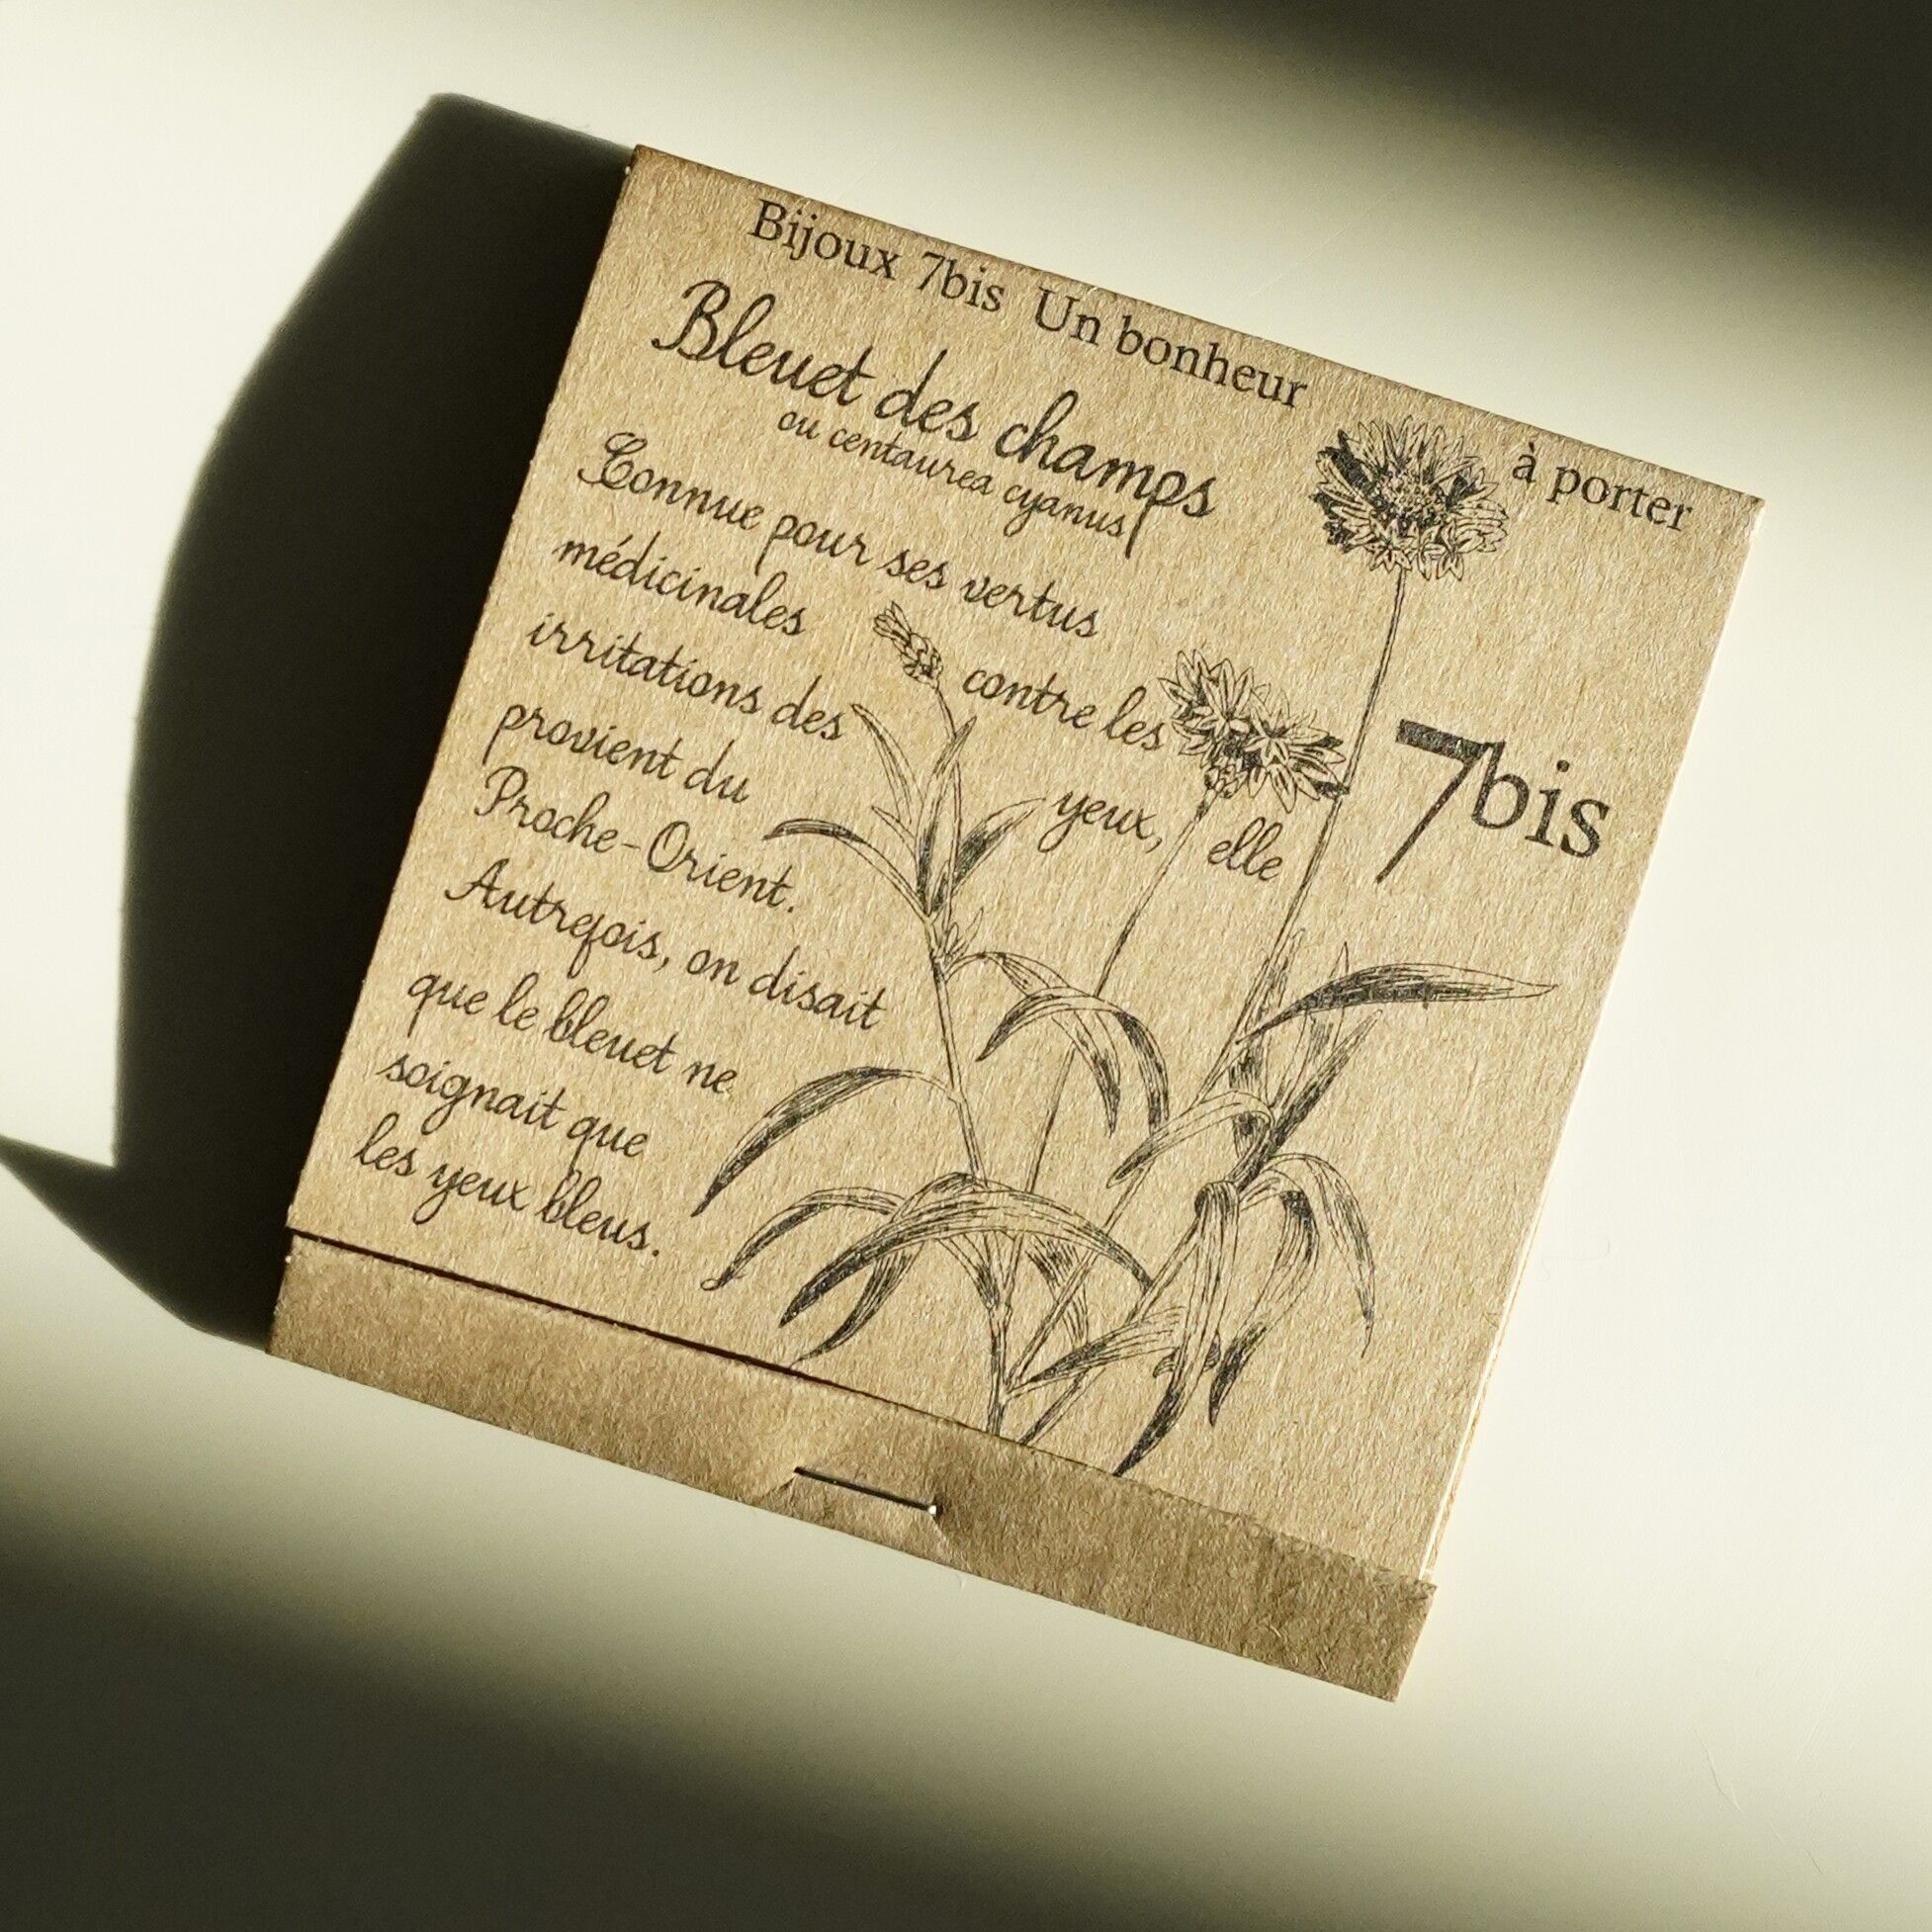 Bijoux 7bis Un bonheur à porter
Bleuet des champs
ou centaurea cyanus
Connue pour ses vertus
médicinales contre les
irritations des yeux, elle
provient du
Proche-Orient.
Autrefois, on disait
que le bleuet ne
soignait que
les yeux bleus.
7bis